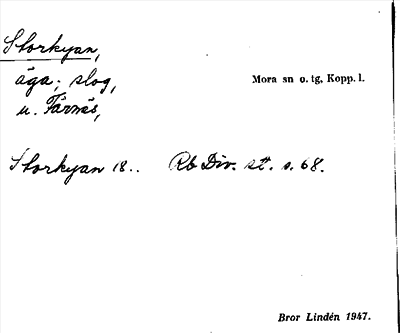 Storkyan,
äga; slog,
Mora sn o. tg, Kopp. l.
u. Färnäs,
Storkyan 18.. Rb Div. st. s. 68.
Bror Lindén 1947.